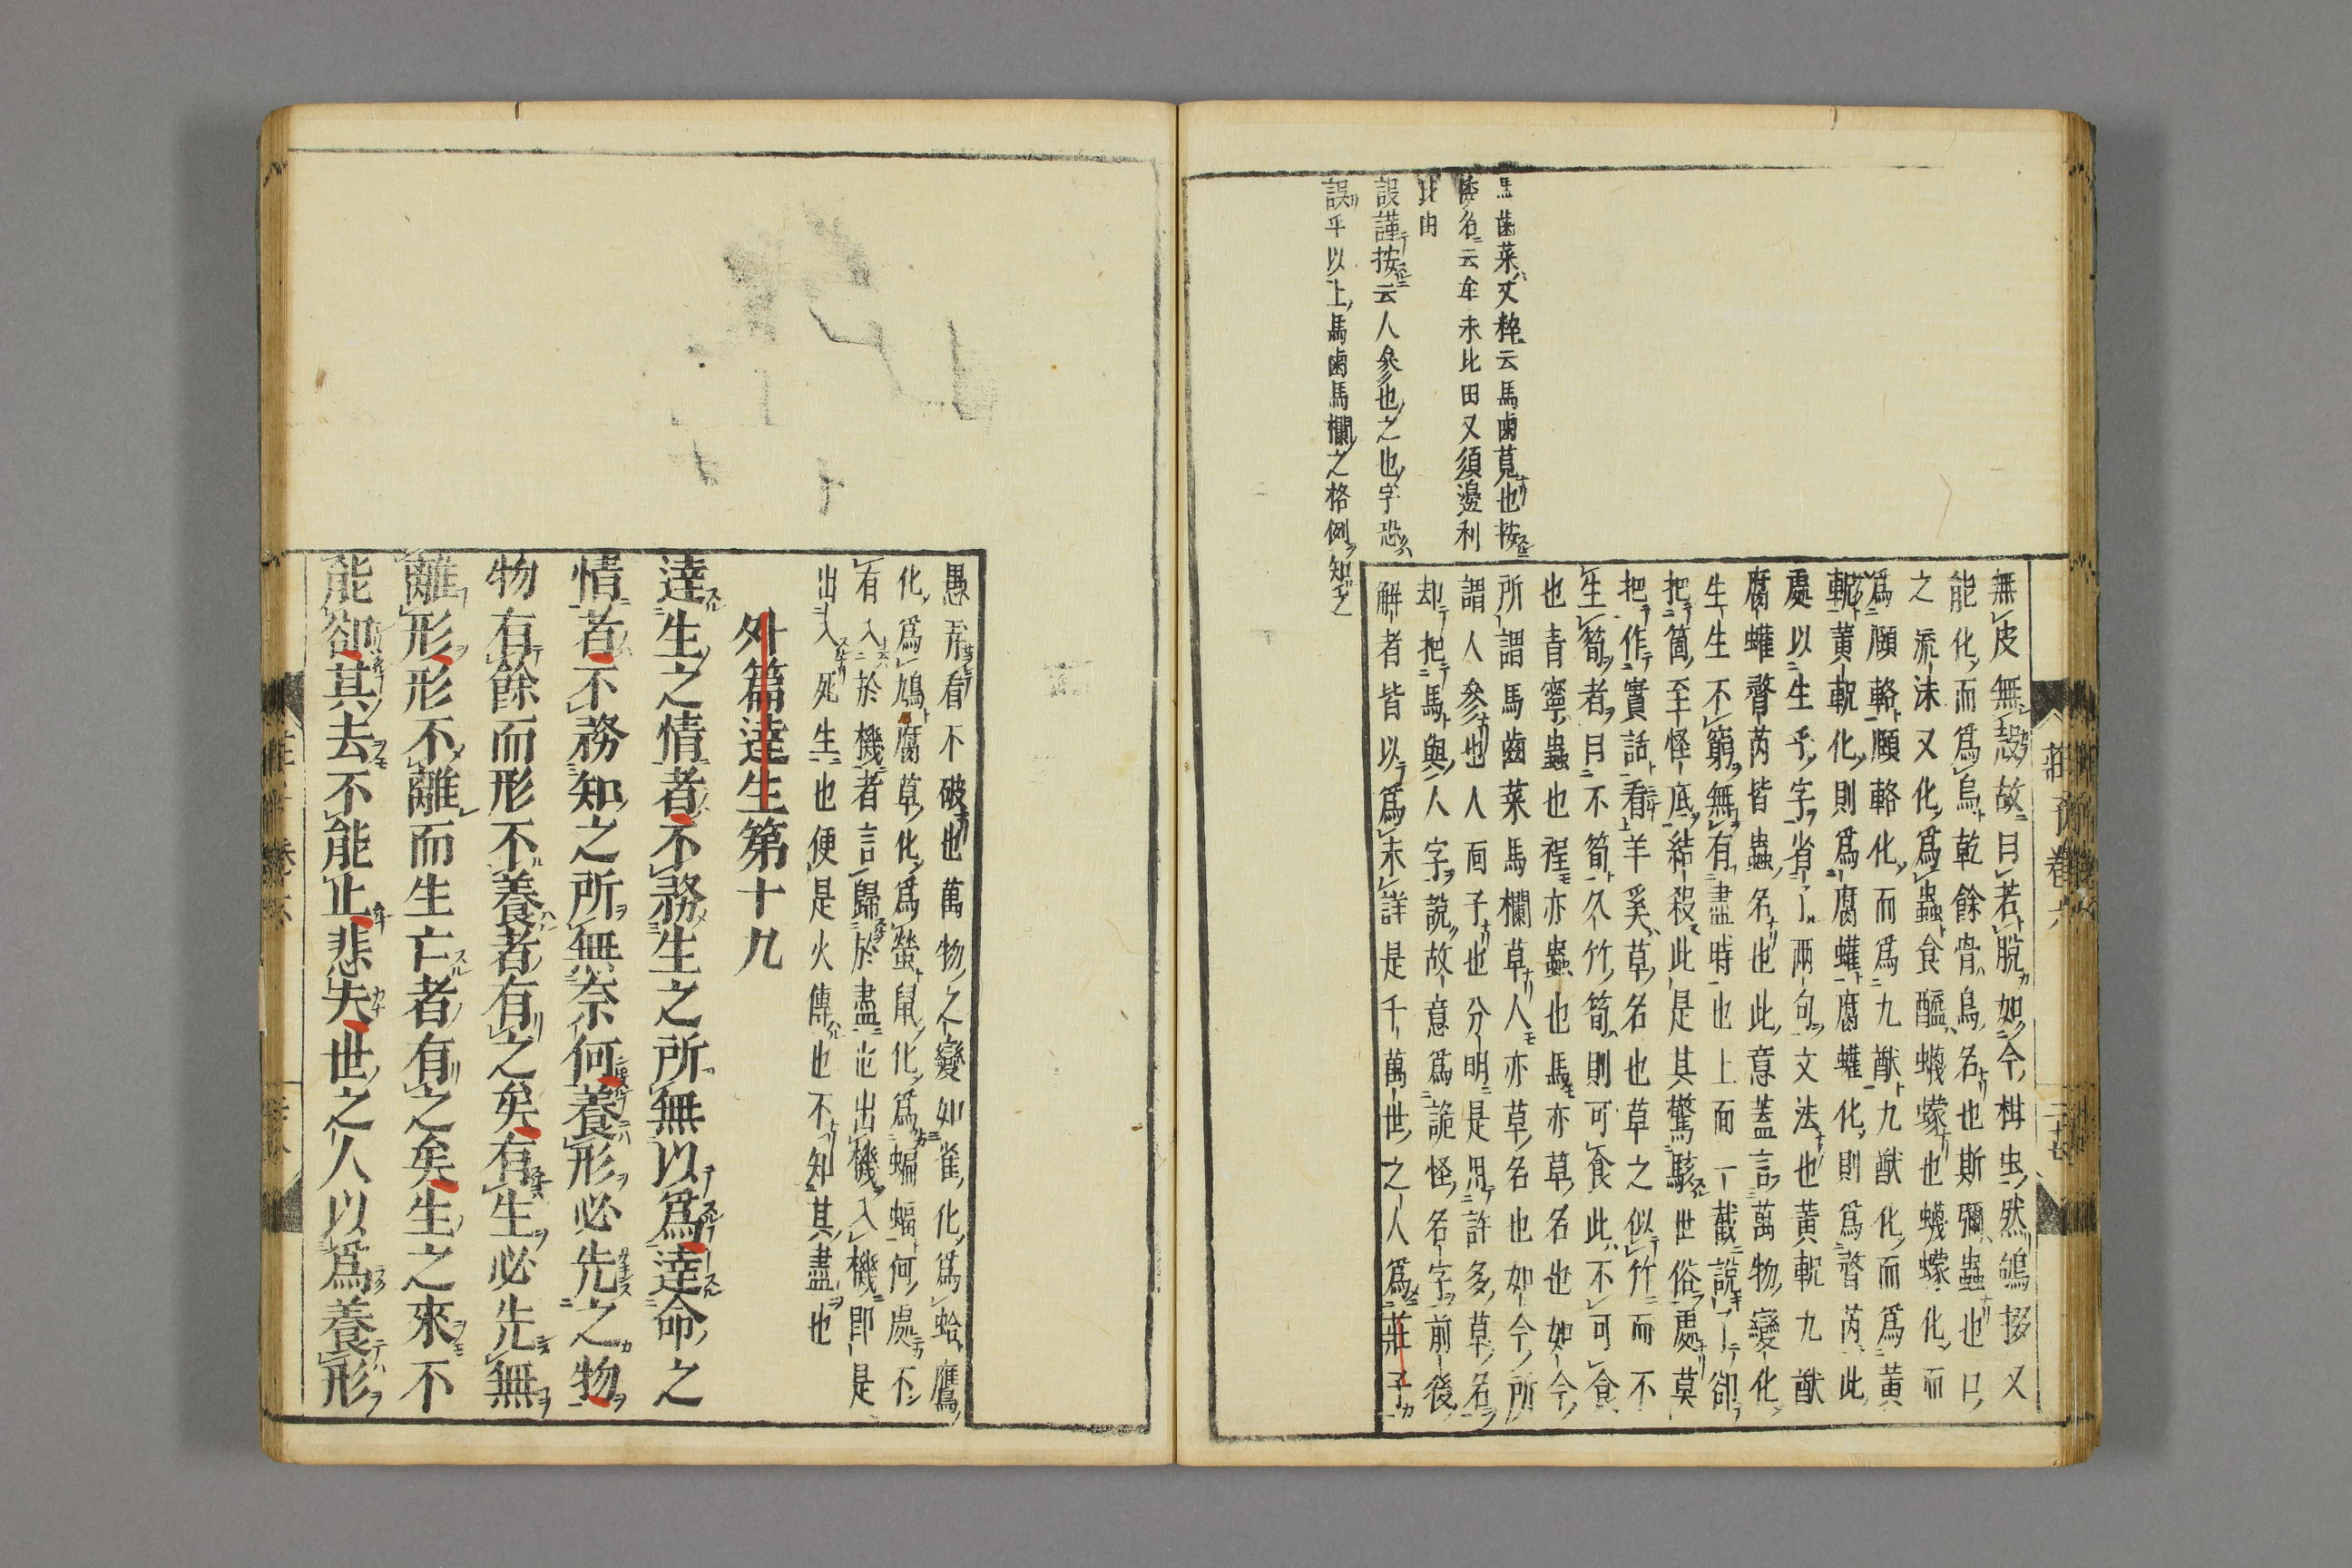 馬齒菜丈粹云馬齒莧也按
名云牟未比田又須邊利
此由
誤謹按云人參也之也字恐
誤乎以上馬齒馬欄之格例知之
無皮無殼故曰若脫如今棋虫然鴝掇又
能化而爲鳥乾餘骨鳥名也斯彌蟲也口
之流沫又化爲蟲食醯蠛蠓也蠛蠓化而
爲頤輅頤輅化而爲九猷九猷化而爲黄
軦黄軦化則爲腐蠸腐蠸化則爲瞀芮此
處以生乎字省了兩句文法也黄軦九猷
腐蠸瞀芮皆蟲名也此意蓋言萬物變化
生生不窮無有盡時也上面一截說了却
把箇至怪底結殺此是其驚駭世俗處莫
把作實話看羊奚草名也草之似竹而不
生筍者曰不筍久竹筍則可食此不可食
也青寧蟲也程亦蟲也馬亦草名也如今
所謂馬齒菜馬欄草人亦草名也如今所
謂人參也人面子也分明是用許多草名
却把馬與人字說故意爲詭怪名字前後
解者皆以爲未詳是千萬世之人爲莊子
莊子卷六
二十七
愚弄看不破也萬物之變如雀化爲蛤鷹
化爲鳩腐草化爲螢鼠化爲蝙蝠何處不
有入於機者言歸於盡也出機入機即是
出入死生也便是火傳也不知其盡也
外篇達生第十九
達生之情者不務生之所無以爲達命之
情者不務知之所無奈何養形必先之物
物有餘而形不養者有之矣有生必先無
離形形不離而生亡者有之矣生之來不
能卻其去不能止悲夫世之人以爲養形